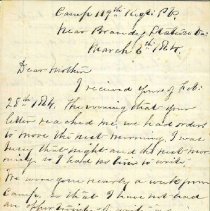 Camp 119th Regt P.V.
Near Brandy Station Va.
March 6th 1864.
Dear Mother
I received yours of Feb.
28th 1864. The evening that your
letter reached me we had orders
to move the next morning I was
busy that night and the next mor
ning, so I had no time to write.
We were gone nearly a week from
camp, so that I have not had
an opportunity